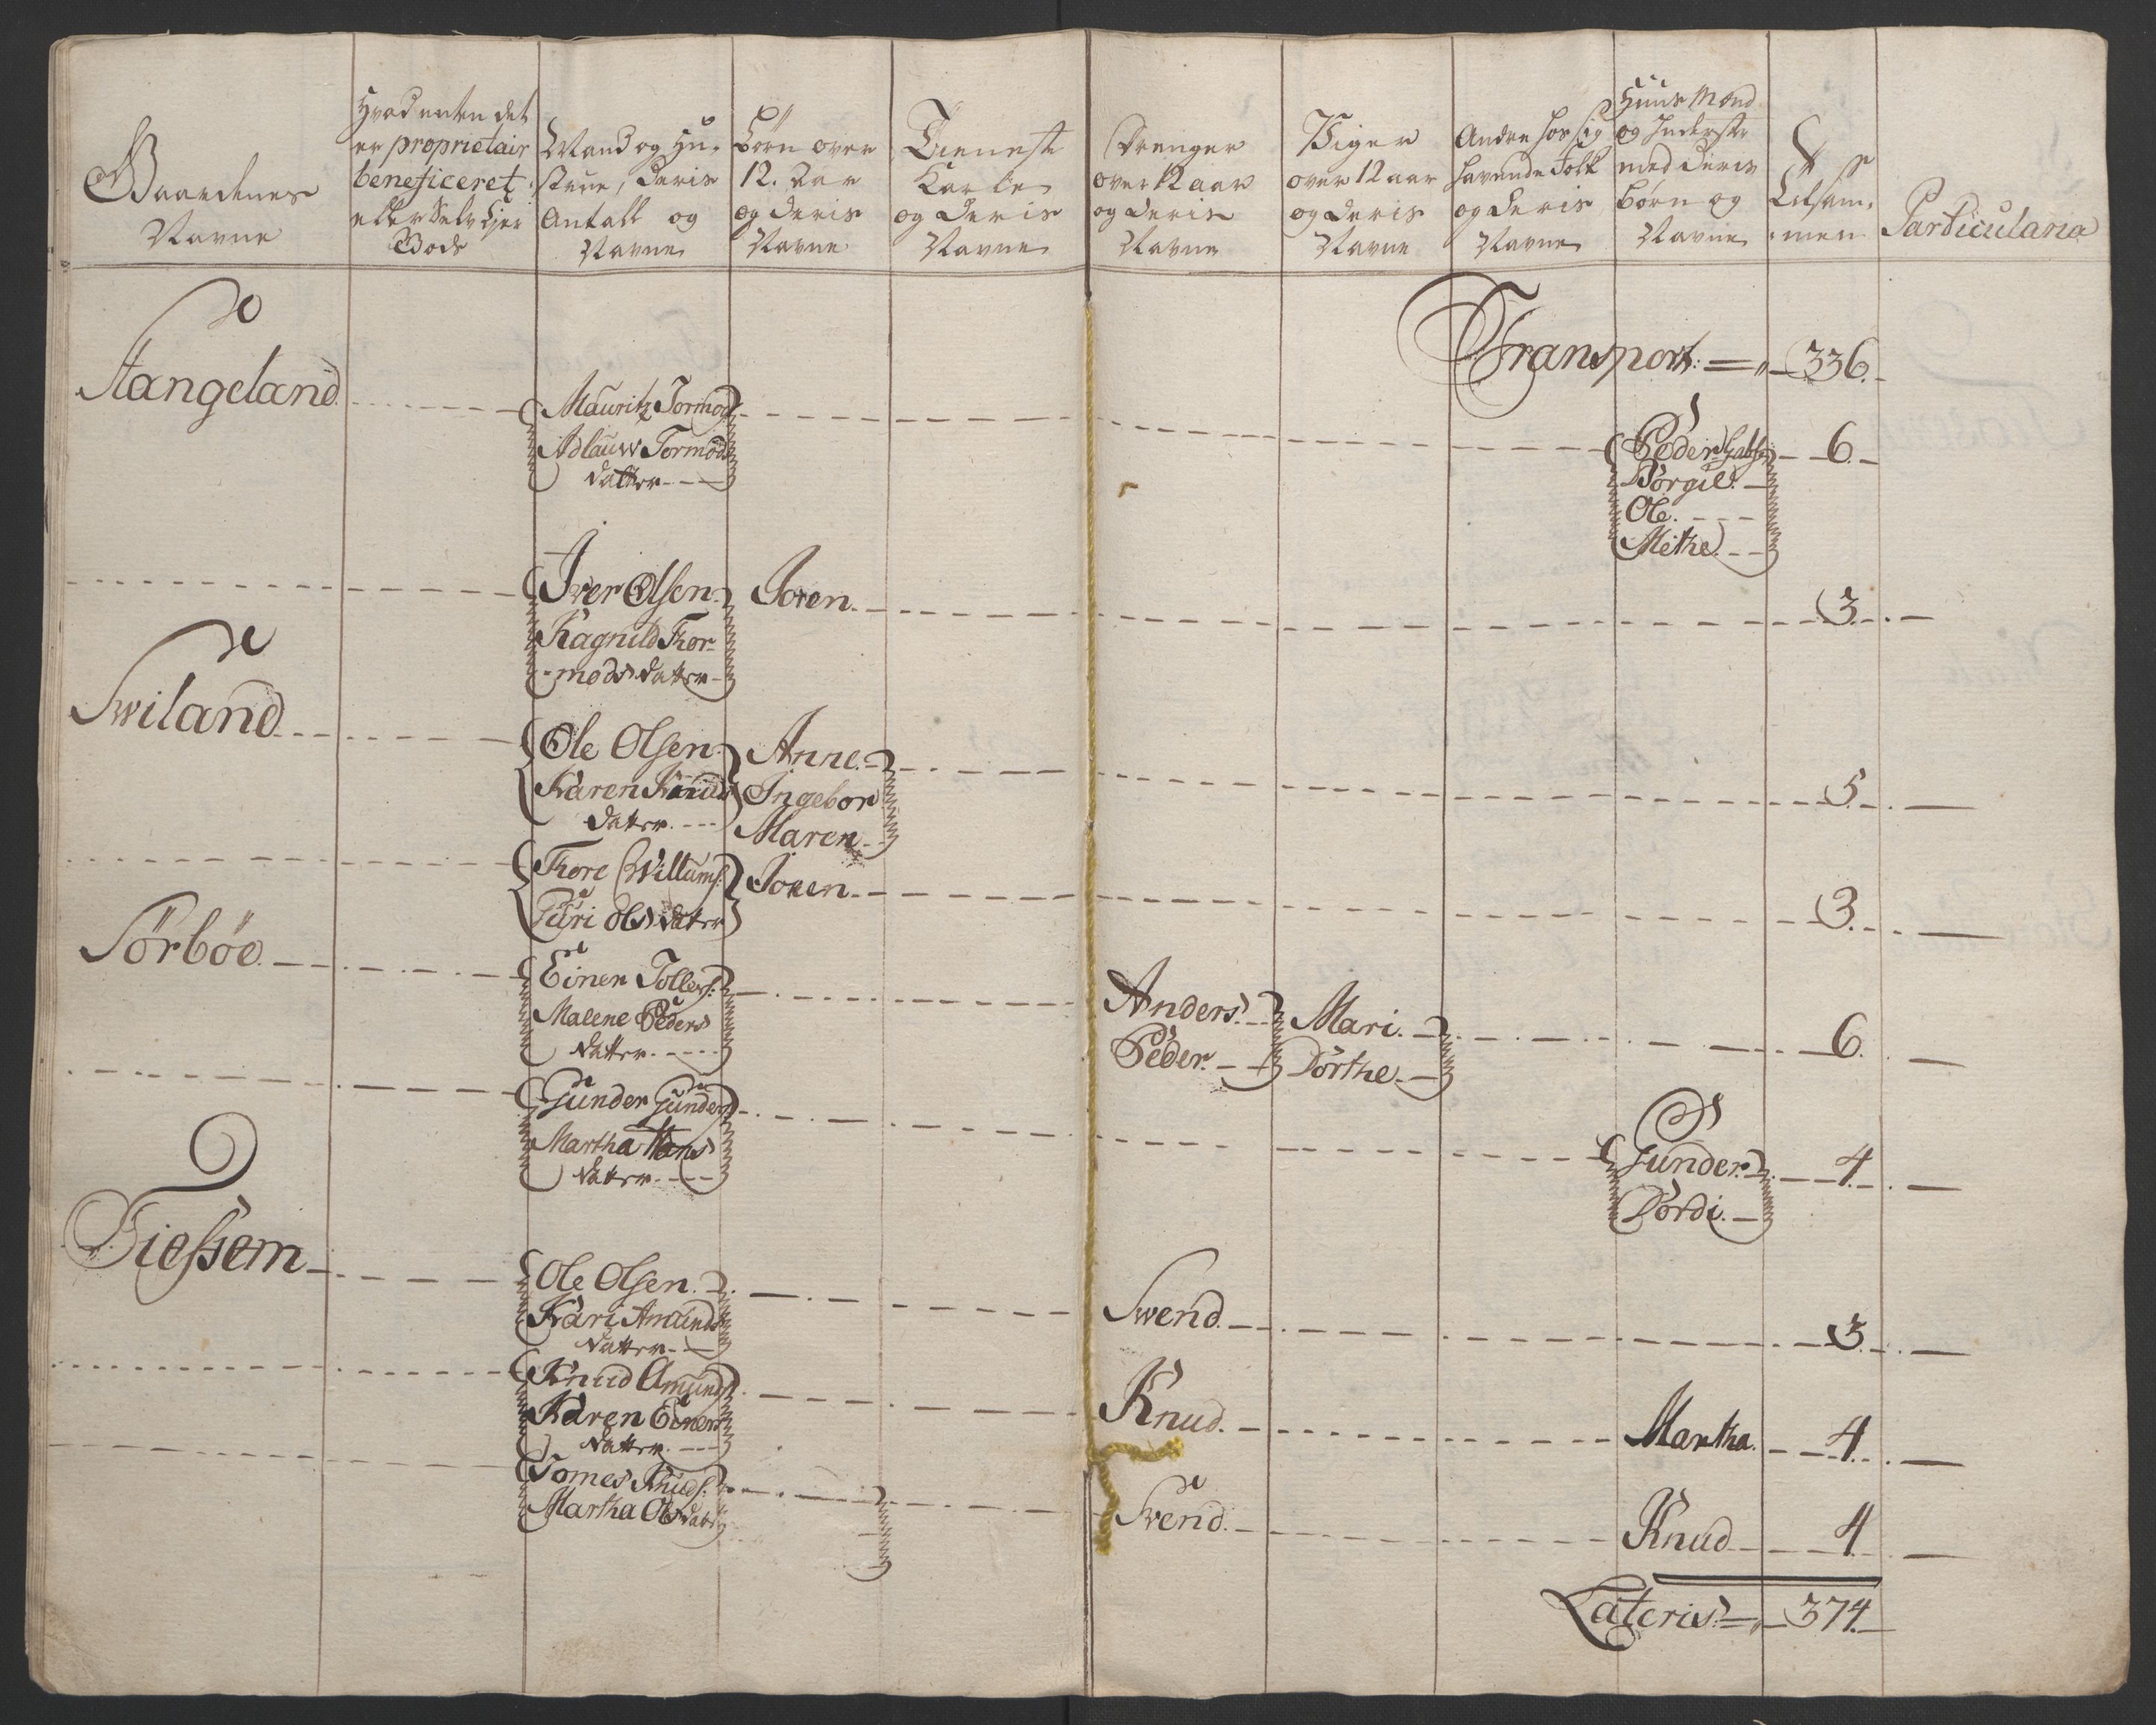 Gaardenes
Navne
Hvad enten det
er proprietair
beneficeret
eller Selv Ejer
Gods
Mand og Hu-
strue, deris
Antall og
Navne
Børn over
12. Aar
og deris
Navne
Tieneste
Karle
og deris
Navne
Drenger
over 12 aar
og deris
Navne
Piger
over 12 aar
og deris
Navne
Andre hos sig
havende Folk
og deris
Navne
Huus Mænd
og Inderste
med deris
børn og
Navne
Tilsam-
men
Particularia
Transport: = 336.
Stangeland
Mauritz Tormods
Adlauw Tormods
datter
Peder
Torgil
Ole
Methe
6.
Iver Olsen
Ragnild Thor-
-mods datter
Soren
3.
Swiland
Ole Olsen
Karen Knuds
datter
Anne
Ingebor
Maren
5.
Thore Willums:
Guri Ols datter
Soren
3.
Sörböe
Einer Tollefs:
Malene Peders
datter
Anders
Peder
Mari
Dorthe
6.
Gunder Gunders
Martha Hans
datter
Gunder
Dordi
4.
Tiessem
Ole Olsen
Kari Amunds
datter
Swend
3.
Knud Amunds
Karen Einers
datter
Knud
Martha
4.
Tomes Knuds:
Martha Ols dater
Swend
Knud
4.
Lateris = 374.